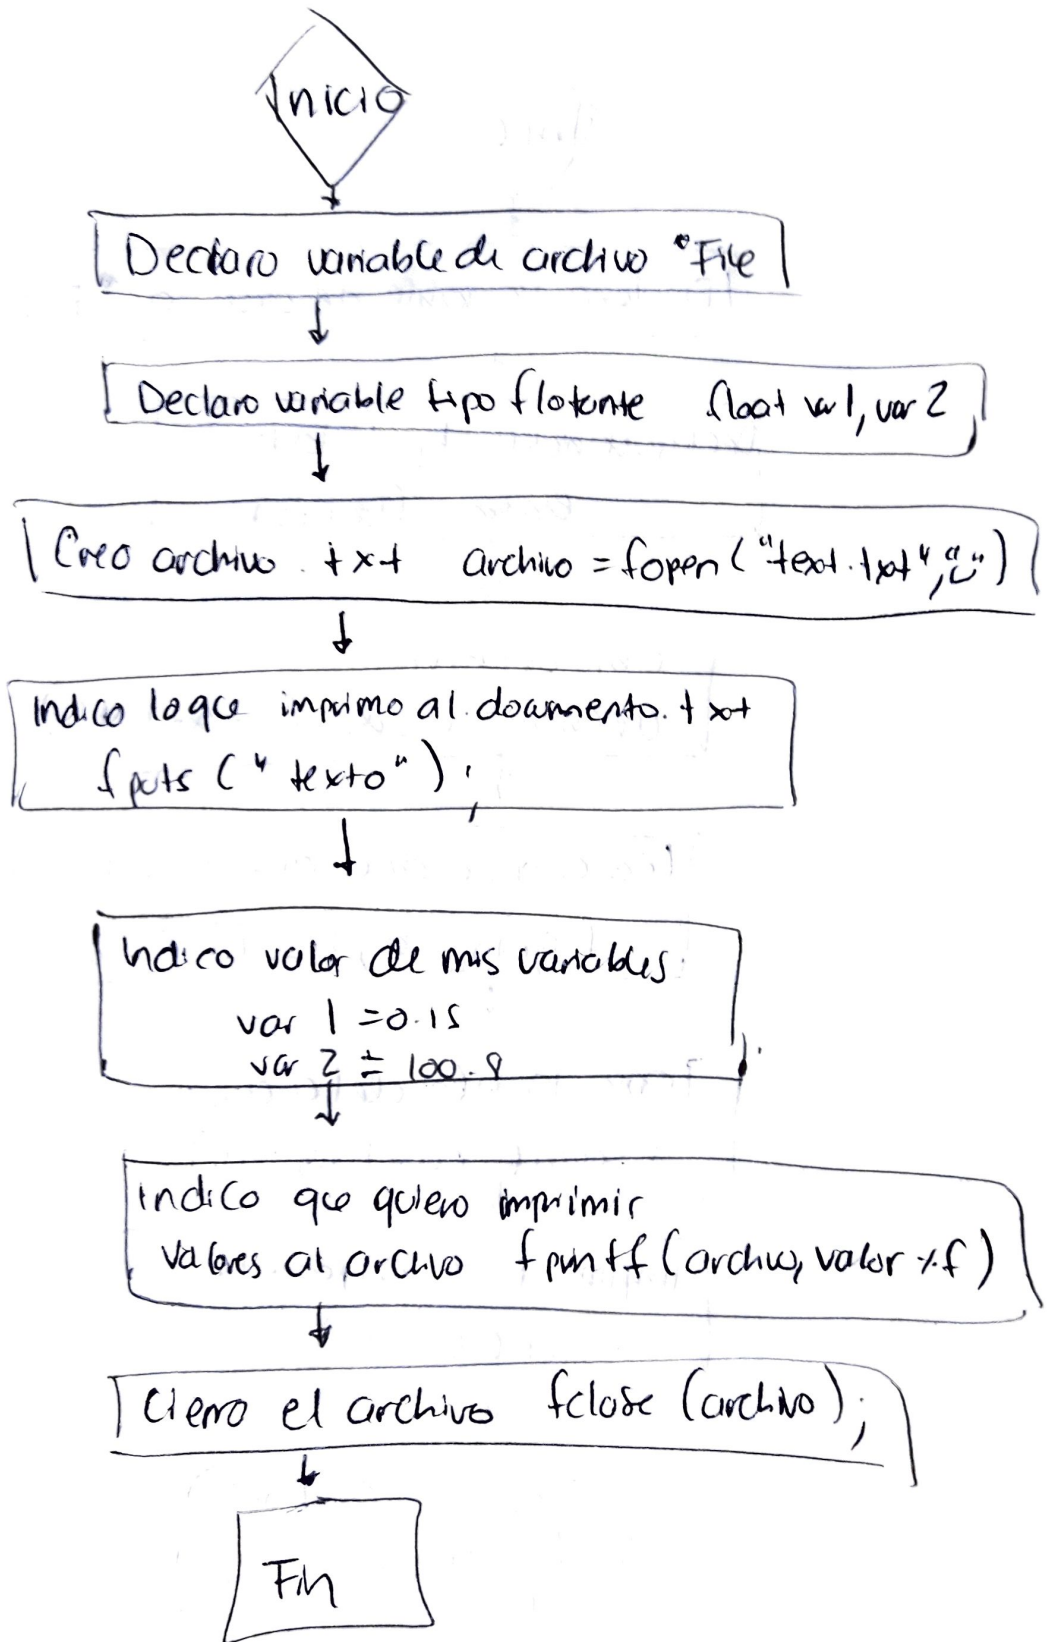 Inicio
Declaro variable de archivo *File
Declaro variable tipo flotante float var1, var 2
Creo archivo .txt archivo = fopen("text.txt",
Indico lo que imprimo al documento.txt
fputs ("texto");
Indico valor de mis variables.
var 1 = 0.15
var 2 = 100.8
Indico que quiero imprimir
valores al archivo fprintf (archivo, valor %f)
Cierro el archivo fclose (archivo);
Fin